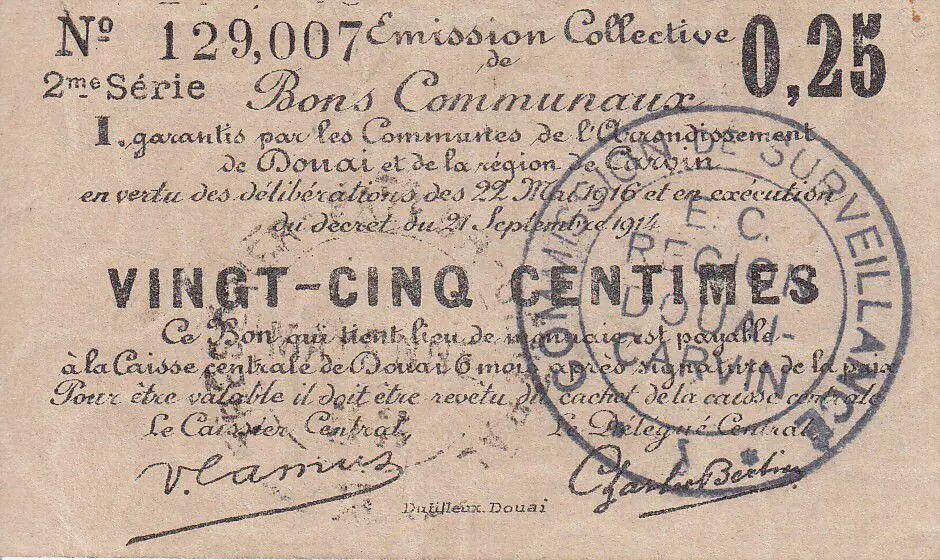 Nº 129,007 Emission Collective 0,25
de
2me Série Bons Communaux
I. garantis par les Communes de l'Arrondissement
de Douai et de la région de Carvin
en vertu des délibérations des 22 Mai 1916 et en exécution
du décret du 21 Septembre 1914
VINGT-CINQ CENTIMES
Ce Bon qui tient lieu de monnaie est payable
à la Caisse centrale de Douai 6 mois après signature de la paix
Pour être valable il doit être revêtu du cachet de la caisse centrale
Le Caissier Central, Le Délégué Central,
Dutilleux. Douai
COMMISSION DE SURVEILLANCE
E. C.
REGION
DOUAI-
CARVIN